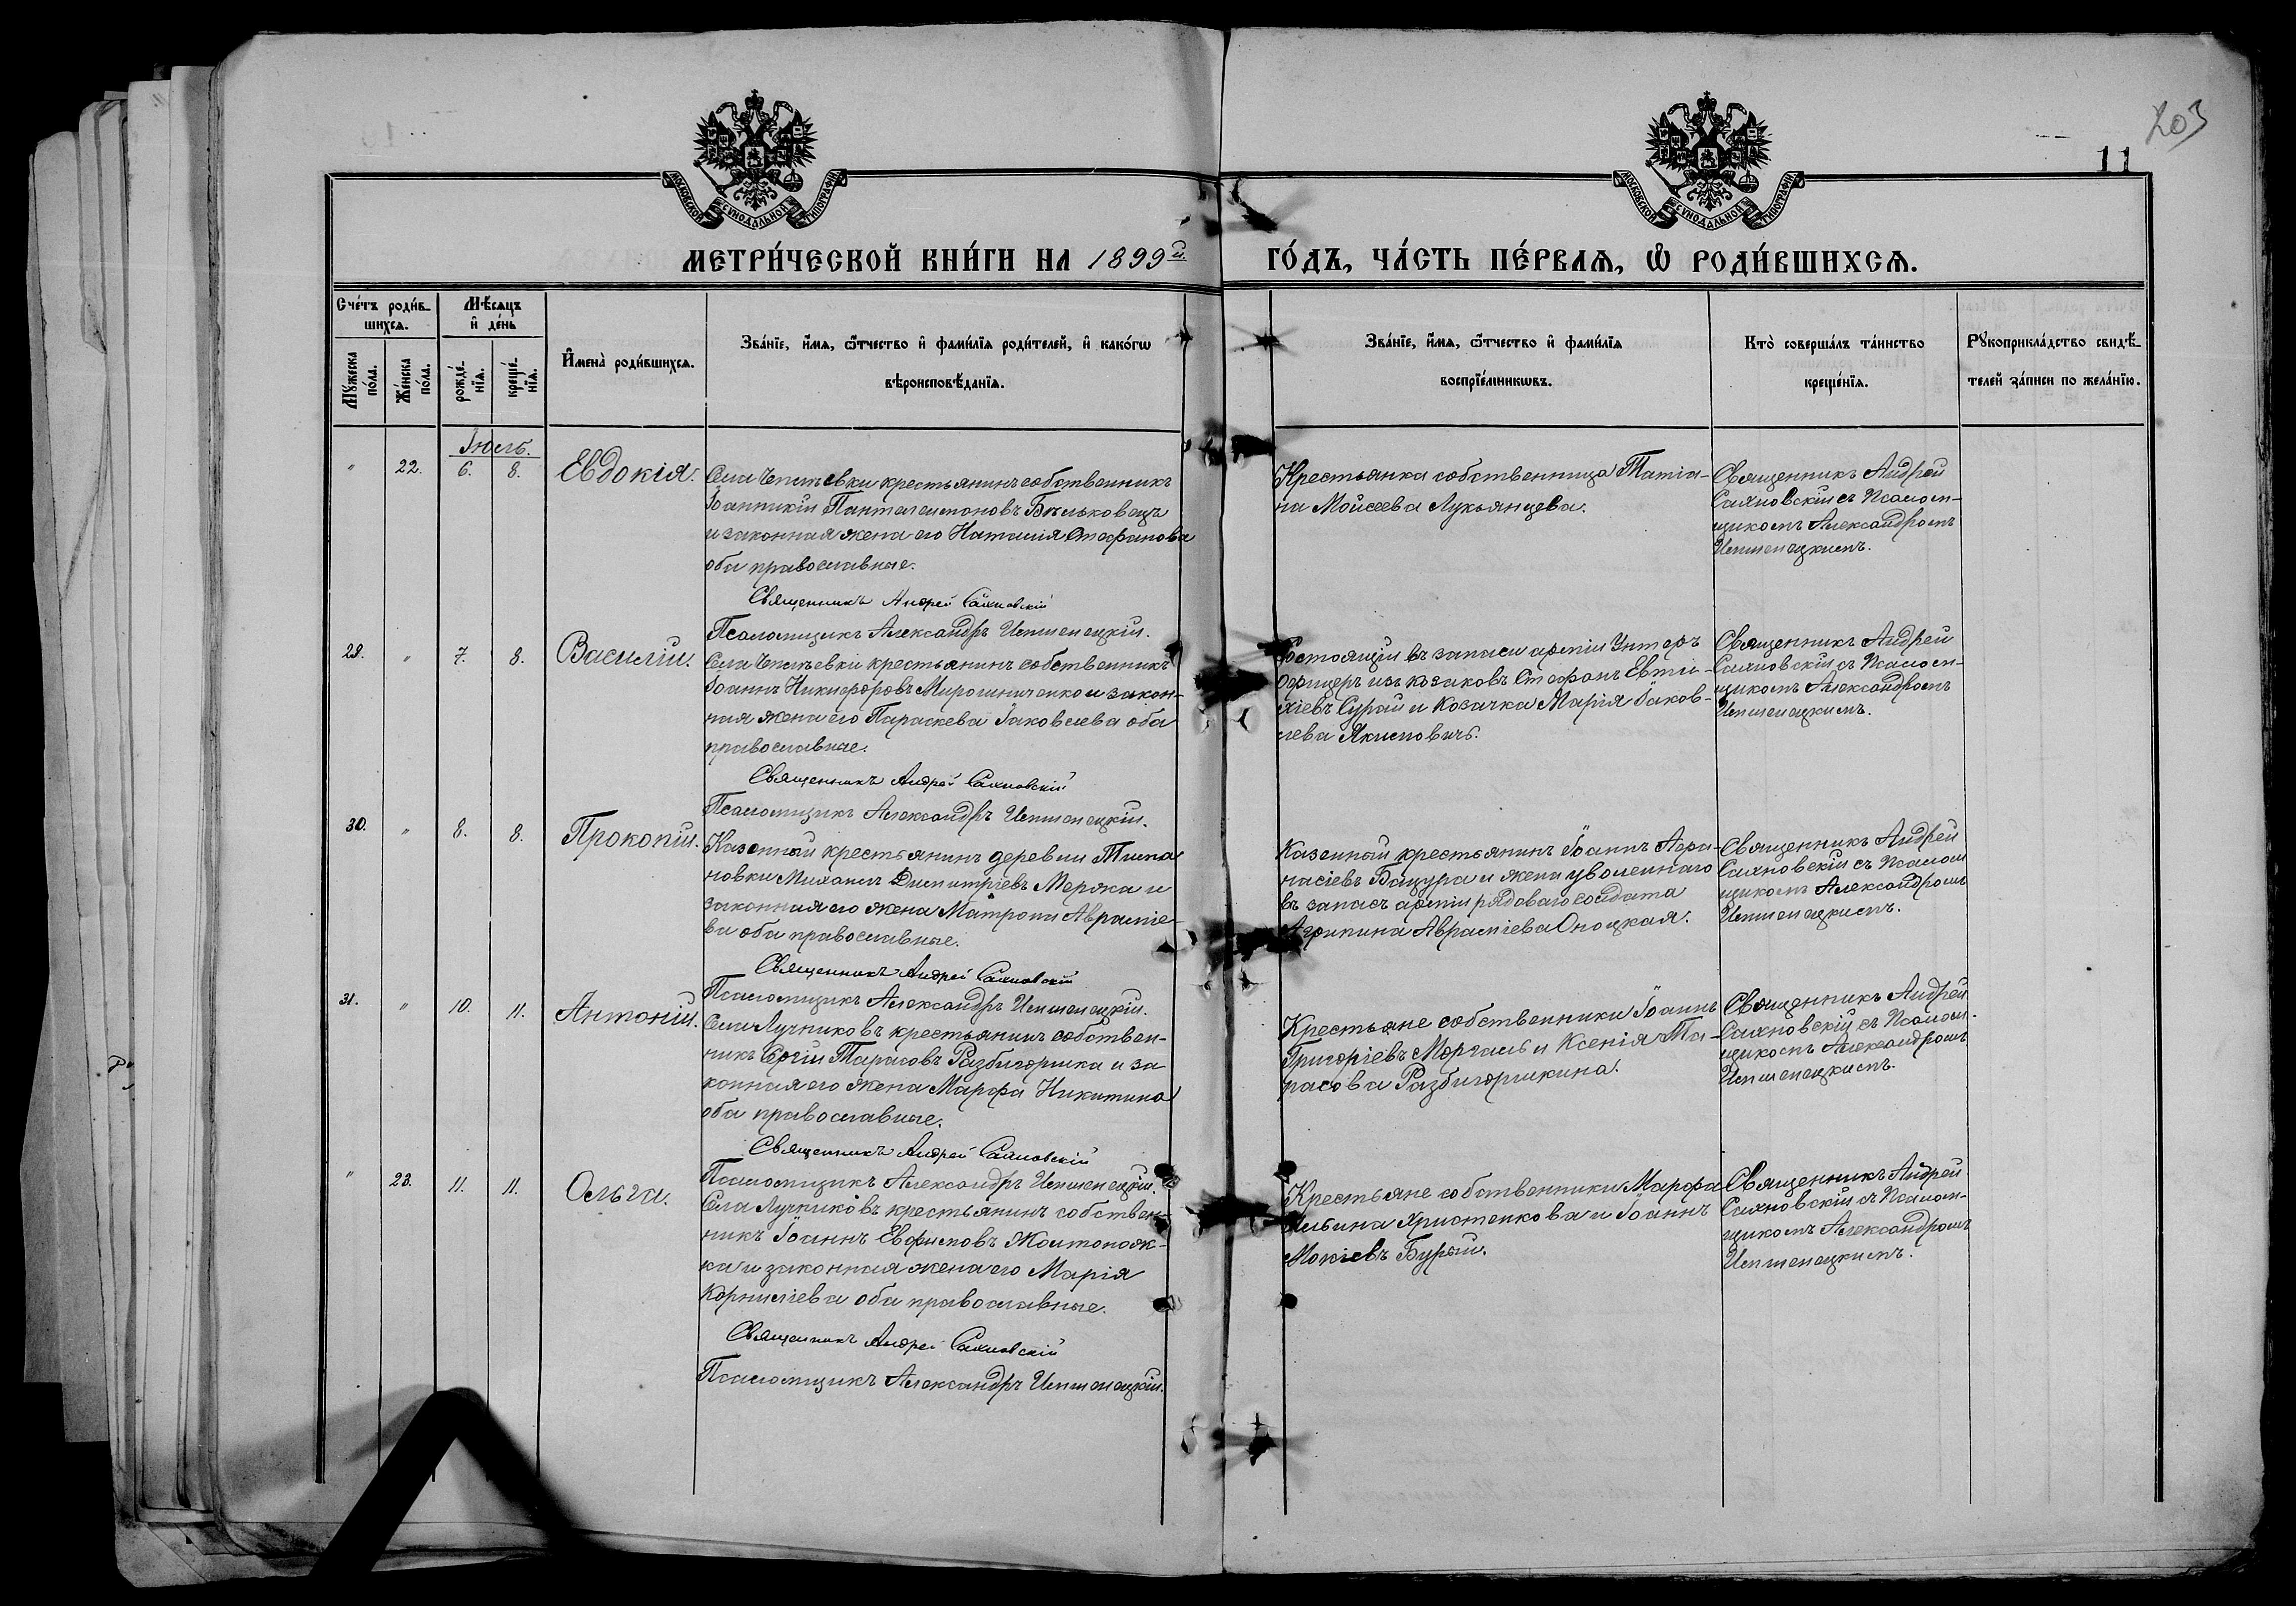 203
11
МОСКОВСКОЙ СѴНОДАЛЬНОЙ ТИПОГРАФІИ
МОСКОВСКОЙ СѴНОДАЛЬНОЙ ТИПОГРАФІИ
МЕТРИ́ЧЕСКОЙ КНИ́ГИ НА 1899й ГО́ДЪ, ЧА́СТЬ ПЕ́РВАЯ, Ѡ҆ РОДИ́ВШИХСЯ.
Сче́тъ роди́в-
шихся.
Мѣ́сяцъ
и҆ де́нь
Мꙋ́жеска
по́ла.
Же́нска
по́ла.
рожде́-
нїя.
креще́-
нїя.
И҆мена̀ роди́вшихся.
Зва́нїе, и҆́мя, ѻ҆́тчество и҆ фами́лїя роди́телей, и҆ како́гѡ
вѣроисповѣ́данїя.
Зва́нїе, и҆́мя, ѻ҆́тчество и҆ фами́лїя
воспрїе́мникѡвъ.
Кто̀ соверша́лъ та́инство
креще́нїя.
Рꙋкоприкла́дство свидѣ́-
телей за́писи по жела́нїю.
Іюль.
" 22. 6. 8. Евдокія.
Села крестьянинъ собственникъ
Іоанникій Пантелеимоновъ Бѣльковецъ
и законная жена его Наталія Стефанова
оба православные.
Священникъ Андрей Сахновскій
Псаломщикъ Александръ
Крестьянка собственница Татіа-
на Моисеева Лукьянцева.
Священникъ Андрей
Сахновскій съ псалом-
щикомъ Александромъ
29. " 7. 8. Василій.
Села крестьянинъ собственникъ
Іоаннъ Никифоровъ Мирошниченко и закон-
ная жена его Параскева Іаковлева оба
православные.
Священникъ Андрей Сахновскій
Псаломщикъ Александръ
Состоящій въ запасѣ арміи Унтеръ
Офицеръ изъ козаковъ Стефанъ Евти-
хіевъ Сурай и Козачка Марія Іаков-
лева Якимовичъ.
Священникъ Андрей
Сахновскій съ псалом-
щикомъ Александромъ
30. " 8. 8. Прокопій.
Казенный крестьянинъ деревни
Михаилъ Димитріевъ Мержа и
законная его жена Матрона Авраміе-
ва оба православные.
Священникъ Андрей Сахновскій
Псаломщикъ Александръ
Казенный крестьянинъ Іоаннъ Афа-
насіевъ Бацура и жена уволеннаго
въ запасъ арміи рядоваго солдата
Агрипина Авраміева Оноцкая.
Священникъ Андрей
Сахновскій съ псалом
щикомъ Александромъ
31. " 10. 11. Антоній.
Села Лучниковъ крестьянинъ собствен-
никъ Сергій Тарасовъ Разбигоршка и за
конная его жена Марфа Никитина
оба православные.
Священникъ Андрей Сахновскій
Псаломщикъ Александръ
Крестьяне собственники Іоаннъ
Григоріевъ Моргаль и Ксенія Та-
расова Разбигоршкина.
Священникъ Андрей
Сахновскій съ псалом-
щикомъ Александромъ
" 23. 11. 11. Ольга.
Села Лучниковъ крестьянинъ собствен-
никъ Іоаннъ Евфимовъ Жолтонож-
ка и законная жена его Марія
Корниліева оба православные.
Священникъ Андрей Сахновскій
Псаломщикъ Александръ
Крестьяне собственники Марфа
Ильина Христенкова и Іоаннъ
Мокіевъ Бурый.
Священникъ Андрей
Сахновскій съ псалом-
щикомъ Александромъ